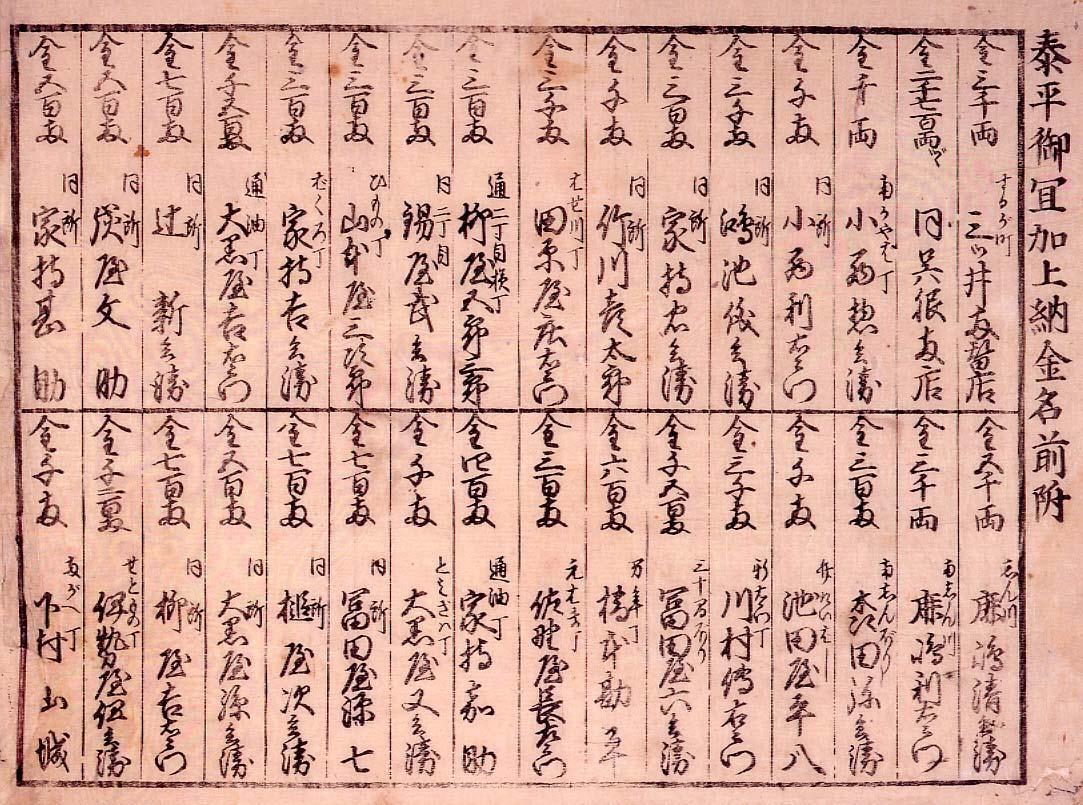 泰平御冥加上納金名前附
金三千両 するが町 三ツ井両替店
金二千七百両づゝ 同呉服両店
金千両 南かやば丁 小西惣兵衛
金千両 同所 小西利右衛門
金三千両 同所 鴻池儀兵衛
金三百両 同所 家持忠兵衛
金千両 同所 竹川彦太郎
金三千両 はせ川丁 田原屋庄右衛門
金三百両 通二丁目横丁 柳屋又郎
金三百両 同二丁目 錫屋武兵衛
金三百両 ひもの丁 山本屋三次郎
金三百両 ばくろ丁 家持吉兵衛
金千五百両 通油丁 大黒屋吉右衛門
金七百両 同所 辻新兵衛
金五百両 同所 屋文助
金五百両 同所 家持甚助
金五千両 しん川 鹿嶋清兵衛
金三千両 南しん川 鹿嶋利右衛門
金三百両 田孫兵衛
金千両 池田屋平八
金三千両 川村伝右衛門
金千五百両 三十間ぼり 冨田屋六兵衛
金六百両 万年丁 橋本勘
金三百両 屋長右衛門
金四百両 通油丁 家持嘉助
金千両 とみざは丁 大黒屋又兵衛
金七百両 同所 冨田屋源七
金七百両 同所 屋次兵衛
金五百両 同所 大黒屋源兵衛
金七百両 同所 柳屋吉右衛門
金千二百両 せともの丁 伊勢屋伊兵衛
金千両 両がへ丁 下村山城